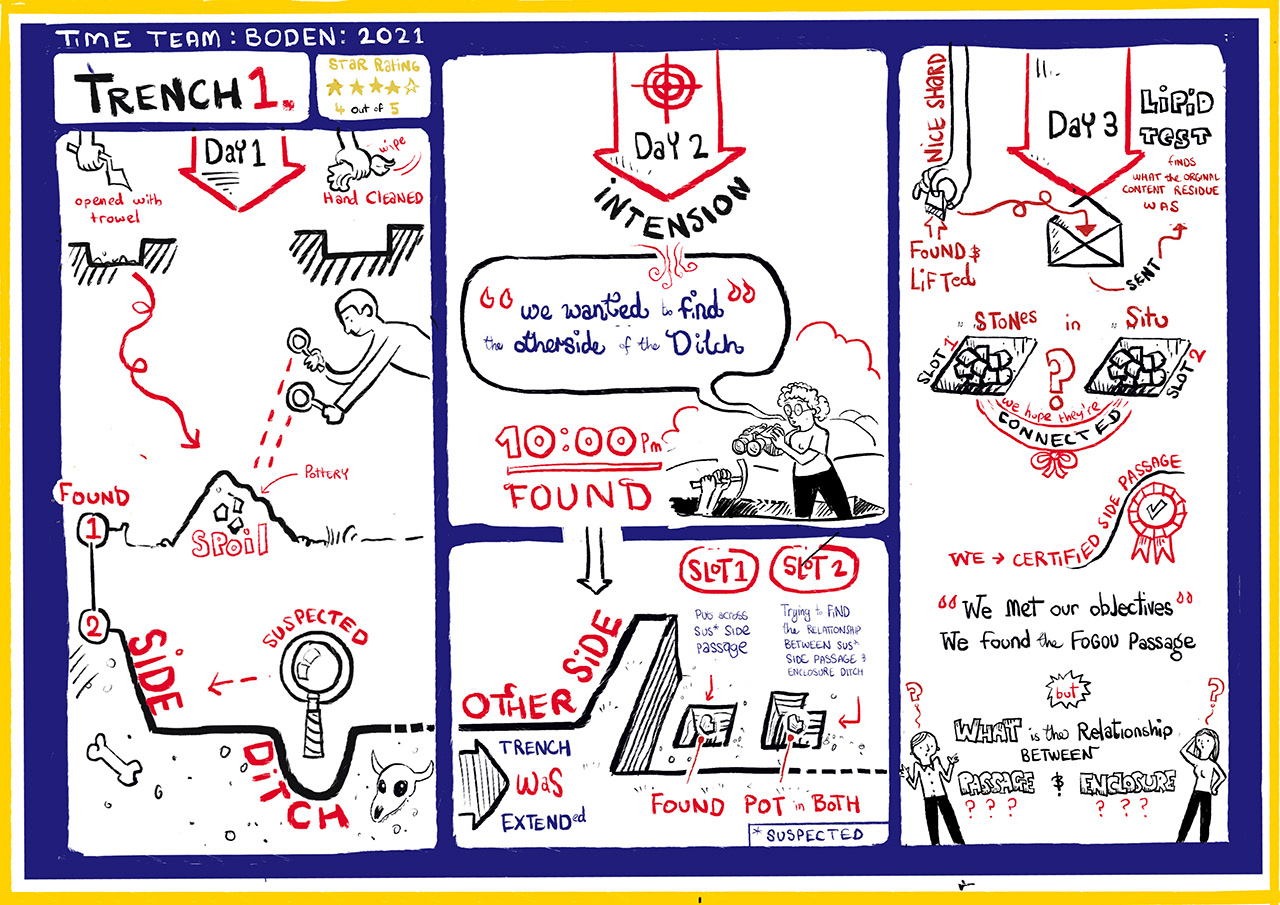 TIME TEAM: BODEN: 2021
TRENCH 1.
STAR RATING
4 out of 5
DAY 1
opened with
trowel
wipe
Hand CLEANED
POTTERY
FOUND
1
SPOIL
2
SIDE
SUSPECTED
DITCH
DAY 2
INTENSION
"we wanted to find
the otherside of the Ditch"
10:00 Pm
FOUND
OTHER SIDE
TRENCH
WAS
EXTENDed
SLOT 1
Put across
SUS* SIDE
passage
SLOT 2
Trying to FIND
the RELATIONSHIP
BETWEEN SUS*
SIDE PASSAGE &
ENCLOSURE DITCH
FOUND POT in BOTH
* SUSPECTED
NICE SHARD
FOUND &
LiFTed
DAY 3
LIPID
TEST
FINDS
WHAT the ORGINAL
CONTENT RESIDUE
WAS
SENT
STONes in Situ
SLOT 1
?
SLOT 2
we hope they're
CONNECTED
WE → CERTIFIED SIDE PASSAGE
"We Met our objectives"
We found the FOGOU Passage
but
WHAT is the Relationship
BETWEEN
PASSAGE & ENCLOSURE
? ? ? ? ? ?
? ?